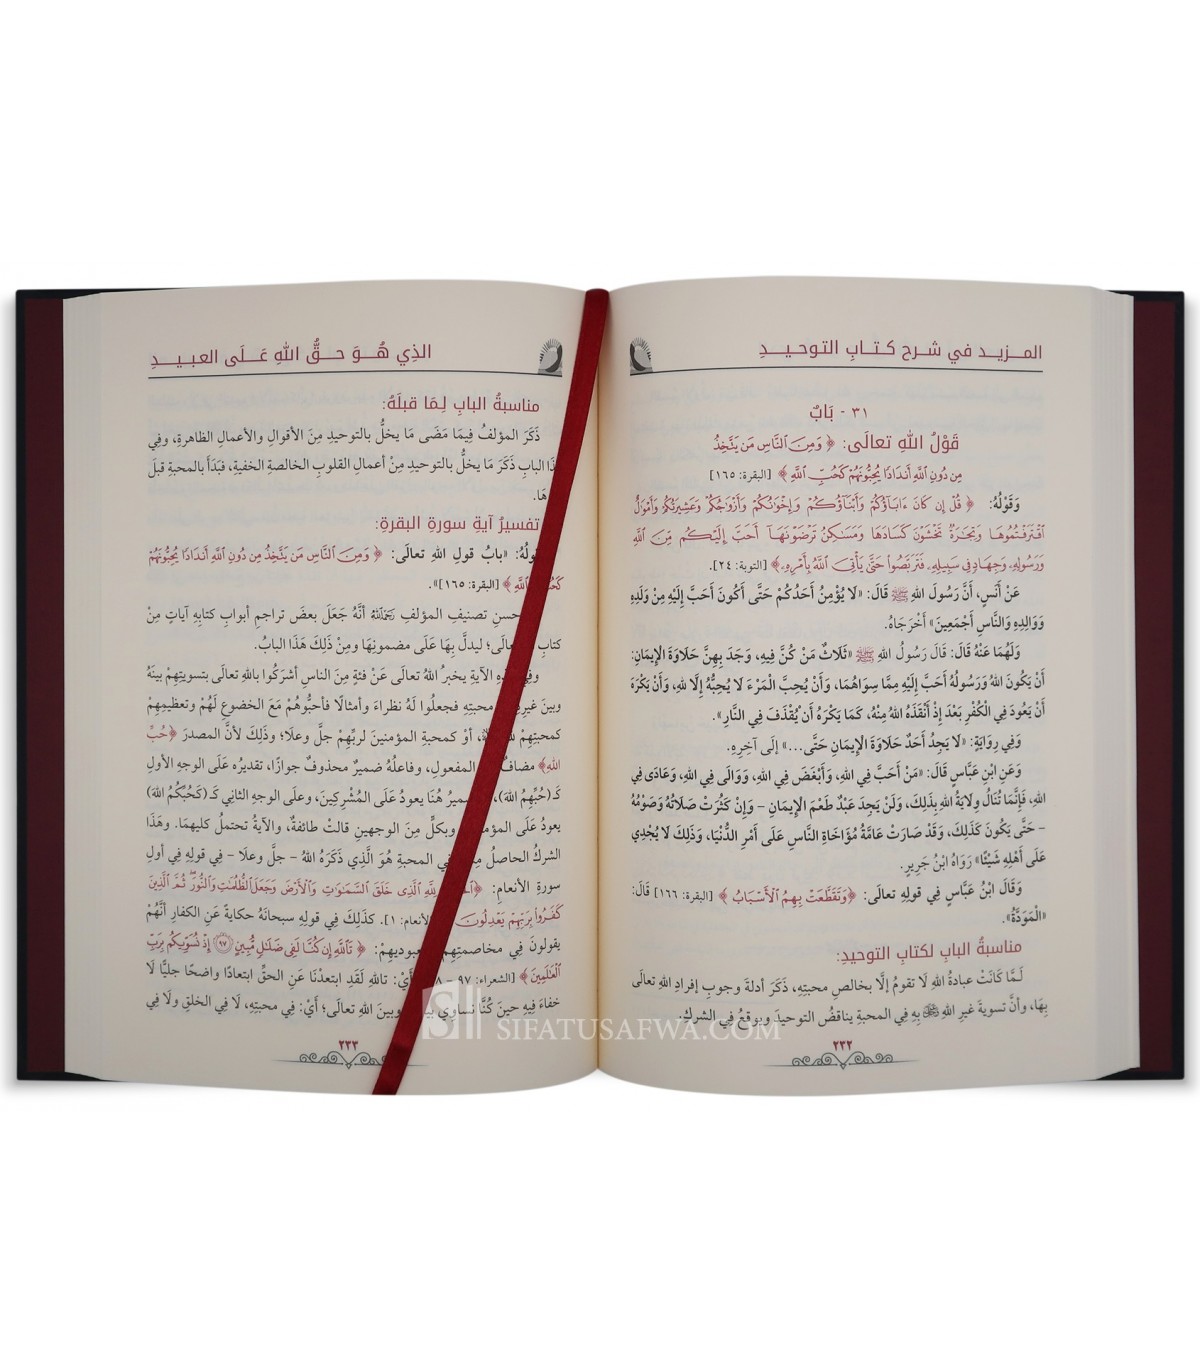 المزيد في شرح كتاب التوحيد
٣١ - بَابُ
قَوْلُ اللهِ تعالَى: ﴿ وَمِنَ النَّاسِ مَن يَتَّخِذُ
مِن دُونِ اللَّهِ أَندَادًا يُحِبُّونَهُمْ كَحُبِّ اللَّهِ ﴾ [البقرة: ١٦٥]
وَقَوْلُهُ: ﴿ قُلْ إِن كَانَ ءَابَآؤُكُمْ وَأَبْنَآؤُكُمْ وَإِخْوَٰنُكُمْ وَأَزْوَٰجُكُمْ وَعَشِيرَتُكُمْ وَأَمْوَٰلٌ
ٱقْتَرَفْتُمُوهَا وَتِجَٰرَةٌ تَخْشَوْنَ كَسَادَهَا وَمَسَٰكِنُ تَرْضَوْنَهَآ أَحَبَّ إِلَيْكُم مِّنَ ٱللَّهِ
وَرَسُولِهِۦ وَجِهَادٍ فِي سَبِيلِهِۦ فَتَرَبَّصُوا۟ حَتَّىٰ يَأْتِيَ ٱللَّهُ بِأَمْرِهِۦ﴾ [التوبة: ٢٤].
عَنْ أَنَسٍ، أَنَّ رَسُولَ اللهِ ﷺ قَالَ: «لَا يُؤْمِنُ أَحَدُكُمْ حَتَّى أَكُونَ أَحَبَّ إِلَيْهِ مِنْ وَلَدِهِ
وَوَالِدِهِ وَالنَّاسِ أَجْمَعِينَ» أَخْرَجَاهُ.
وَلَهُمَا عَنْهُ قَالَ: قَالَ رَسُولُ اللهِ ﷺ «ثَلَاثٌ مَنْ كُنَّ فِيهِ، وَجَدَ بِهِنَّ حَلَاوَةَ الْإِيمَانِ:
أَنْ يَكُونَ اللهُ وَرَسُولُهُ أَحَبَّ إِلَيْهِ مِمَّا سِوَاهُمَا، وَأَنْ يُحِبَّ الْمَرْءَ لَا يُحِبُّهُ إِلَّا لِلهِ، وَأَنْ يَكْرَهَ
أَنْ يَعُودَ فِي الْكُفْرِ بَعْدَ إِذْ أَنْقَذَهُ اللهُ مِنْهُ، كَمَا يَكْرَهُ أَنْ يُقْذَفَ فِي النَّارِ».
وَفِي رِوَايَةٍ: «لَا يَجِدُ أَحَدٌ حَلَاوَةَ الْإِيمَانِ حَتَّى...» إِلَى آخِرِهِ.
وَعَنِ ابْنِ عَبَّاسٍ قَالَ: «مَنْ أَحَبَّ فِي اللهِ، وَأَبْغَضَ فِي اللهِ، وَوَالَى فِي اللهِ، وَعَادَى فِي
اللهِ، فَإِنَّمَا تُنَالُ وِلَايَةُ اللهِ بِذَلِكَ، وَلَنْ يَجِدَ عَبْدٌ طَعْمَ الْإِيمَانِ - وَإِنْ كَثُرَتْ صَلَاتُهُ وَصَوْمُهُ
- حَتَّى يَكُونَ كَذَلِكَ، وَقَدْ صَارَتْ عَامَّةُ مُؤَاخَاةِ النَّاسِ عَلَى أَمْرِ الدُّنْيَا، وَذَلِكَ لَا يُجْدِي
عَلَى أَهْلِهِ شَيْئًا» رَوَاهُ ابْنُ جَرِيرٍ.
وَقَالَ ابْنُ عَبَّاسٍ فِي قولِهِ تعالَى: ﴿وَتَقَطَّعَتْ بِهِمُ ٱلْأَسْبَابُ ﴾ [البقرة: ١٦٦] قَالَ:
«الْمَوَدَّةُ».
مناسبةُ البابِ لكتابِ التوحيدِ:
لَمَّا كَانَتْ عبادةُ اللهِ لَا تقومُ إِلَّا بخالصِ محبتِهِ، ذَكَرَ أدلةَ وجوبِ إفرادِ اللهِ تعالَى
بِهَا، وأنَّ تسويةَ غيرِ اللهِ ﷻ بِهِ فِي المحبةِ يناقضُ التوحيدَ ويوقعُ فِي الشركِ.
٢٣٢
الذِي هُوَ حقُّ اللهِ عَلَى العبيدِ
مناسبةُ البابِ لِمَا قبلَهُ:
ذَكَرَ المؤلفُ فِيمَا مَضَى مَا يخلُّ بالتوحيدِ مِنَ الأقوالِ والأعمالِ الظاهرةِ، وفِي
ذَا البابِ ذَكَرَ مَا يخلُّ بالتوحيدِ مِنْ أعمالِ القلوبِ الخالصةِ الخفيةِ، فبَدَأَ بالمحبةِ قبلَ
هَا.
تفسيرُ آيةِ سورةِ البقرةِ:
ولُهُ: «بابُ قولِ اللهِ تعالَى: ﴿ وَمِنَ ٱلنَّاسِ مَن يَتَّخِذُ مِن دُونِ ٱللَّهِ أَندَادًا يُحِبُّونَهُمْ
كَحُبِّ ٱللَّهِ ﴾ [البقرة: ١٦٥]».
حسنِ تصنيفِ المؤلفِ رَحِمَهُ اللهُ أنَّهُ جَعَلَ بعضَ تراجمِ أبوابِ كتابِهِ آياتٍ مِنْ
كتابِ عالَى؛ ليدلَّ بِهَا عَلَى مضمونِهَا ومِنْ ذَلِكَ هَذَا البابُ.
وفِي هِ الآيةِ يخبرُ اللهُ تعالَى عَنْ فئةٍ مِنَ الناسِ أشرَكُوا باللهِ تعالَى بتسويتِهِمْ بينَهُ
وبينَ غيرِهِ محبتِهِ فجعلُوا لَهُ نظراءَ وأمثالًا فأحبُّوهُمْ مَعَ الخضوعِ لَهُمْ وتعظيمِهِمْ
كمحبتِهِمْ للهِ أَوْ كمحبةِ المؤمنينَ لربِّهِمْ جلَّ وعلَا؛ وذَلِكَ لأنَّ المصدرَ ﴿حُبِّ
اللهِ﴾ مضافٌ المفعولِ، وفاعلُهُ ضميرٌ محذوفٌ جوازًا، تقديرُهُ عَلَى الوجهِ الأولِ
كَـ(حُبِّهِمُ اللهَ)، ميرُ هُنَا يعودُ عَلَى المُشْرِكِينَ، وعلَى الوجهِ الثانِي كَـ(حُبِّكُمُ اللهَ)
يعودُ عَلَى المؤمنـ وبكلٍّ مِنَ الوجهينِ قالتْ طائفةٌ، والآيةُ تحتملُ كليهِمَا. وهَذَا
الشركُ الحاصلُ مِنْ فِي المحبةِ هُوَ الَّذِي ذَكَرَهُ اللهُ - جلَّ وعلَا - فِي قولِهِ فِي أولِ
سورةِ الأنعامِ: ﴿ لِلَّهِ ٱلَّذِي خَلَقَ ٱلسَّمَٰوَٰتِ وَٱلْأَرْضَ وَجَعَلَ ٱلظُّلُمَٰتِ وَٱلنُّورَ ۖ ثُمَّ ٱلَّذِينَ
كَفَرُوا۟ بِرَبِّهِمْ يَعْدِلُونَ الأنعام: ١]. كذلِكَ فِي قولِهِ سبحانَهُ حكايةً عَنِ الكفارِ أنَّهُمْ
يقولونَ فِي مخاصمتِهِمْ عبوديهِمْ: ﴿ تَٱللَّهِ إِن كُنَّا لَفِي ضَلَٰلٍ مُّبِينٍ ٩٧ إِذْ نُسَوِّيكُم بِرَبِّ
ٱلْعَٰلَمِينَ ﴾ [الشعراء: ٩٧ - ٨ أَيْ: تاللهِ لَقَدِ ابتعدْنَا عَنِ الحقِّ ابتعادًا واضحًا جليًّا لَا
خفاءَ فِيهِ حينَ كُنَّا نساوِي وبينَ اللهِ تعالَى؛ أَيْ: فِي محبتِهِ، لَا فِي الخلقِ ولَا فِي
٢٣٣
SIFATUSAFWA.COM